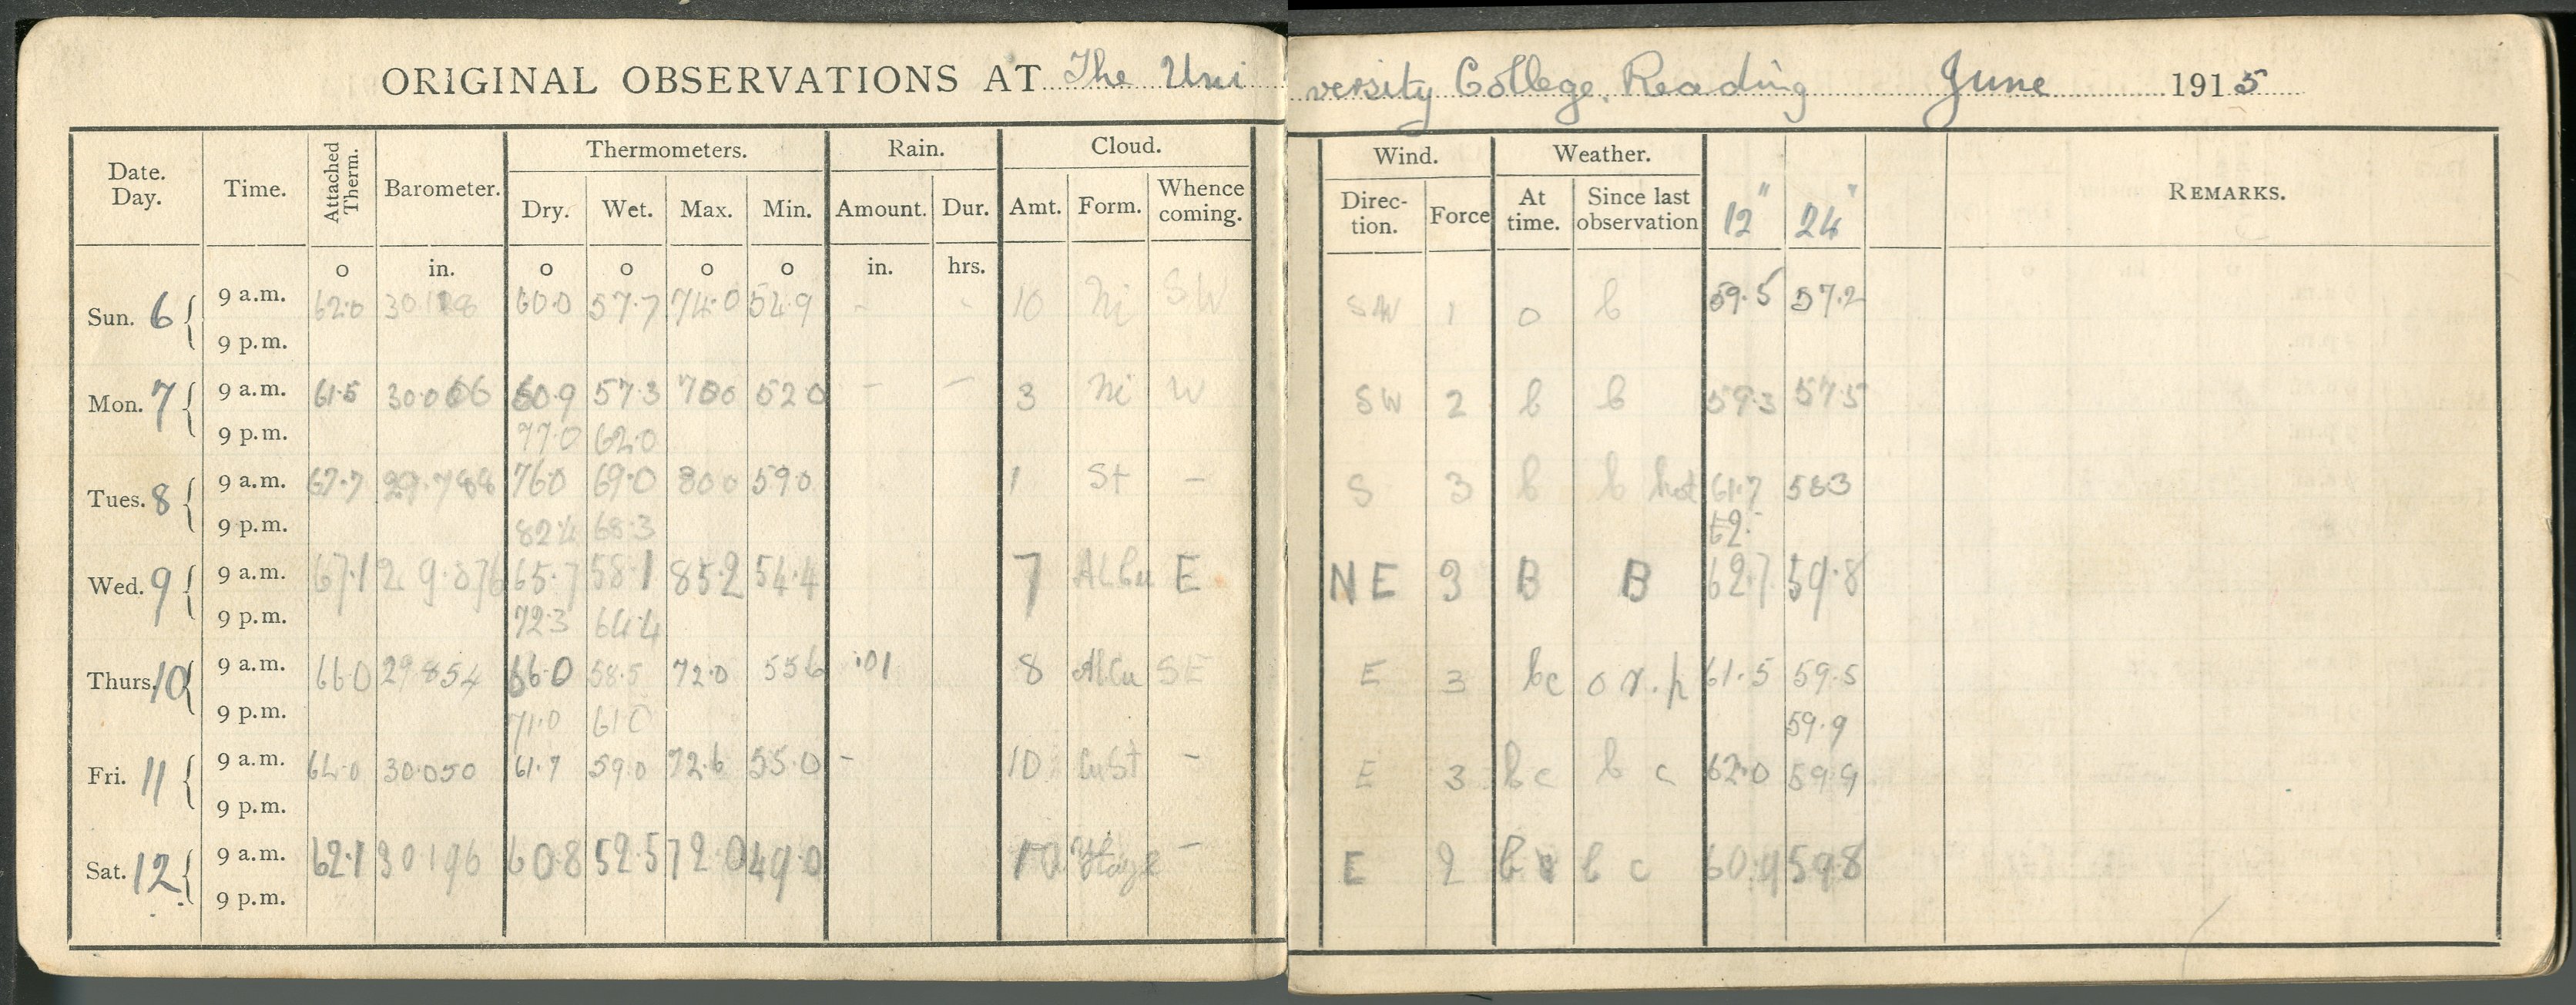 ORIGINAL OBSERVATIONS AT The University College, Reading June 1915
Date. Day. Time. Attached Therm. Barometer. Thermometers. Rain. Cloud. Wind. Weather. 12" 24" REMARKS.
Dry. Wet. Max. Min. Amount. Dur. Amt. Form. Whence coming. Direc-tion. Force At time. Since last observation
o in. o o o o in. hrs.
Sun. 6 9 a.m. 62.0 60.0 57.7 74.0 54.9 - - 10 Ni SW SW 1 o b 59.5 57.2
9 p.m.
Mon. 7 9 a.m. 61.5 30.066 60.9 57.3 700 520 - - 3 Ni W SW 2 b b 59.3 57.5
9 p.m. 77.0 62.0
Tues. 8 9 a.m. 67.7 29.788 76.0 69.0 80.0 59.0 1 St - S 3 b b hot 61.7 583
9 p.m. 82.4 68.3 62.
Wed. 9 9 a.m. 67.1 65.7 58.1 85.2 54.4 7 ALCu E NE 3 B B 62.7 59.8
9 p.m. 72.3 64.4
Thurs. 10 9 a.m. 66.0 29.854 66.0 58.5 72.0 55.6 .01 8 AlCu SE E 3 bc o r.p 61.5 59.5
9 p.m. 71.0 61.0 59.9
Fri. 11 9 a.m. 64.0 30.050 61.7 59.0 72.6 55.0 - 10 CuSt - E 3 bc b c 62.0 59.9
9 p.m.
Sat. 12 9 a.m. 62.1 30196 60.8 52.5 72.0 49.0 10 Haze - E 2 b b c 60.9 59.8
9 p.m.